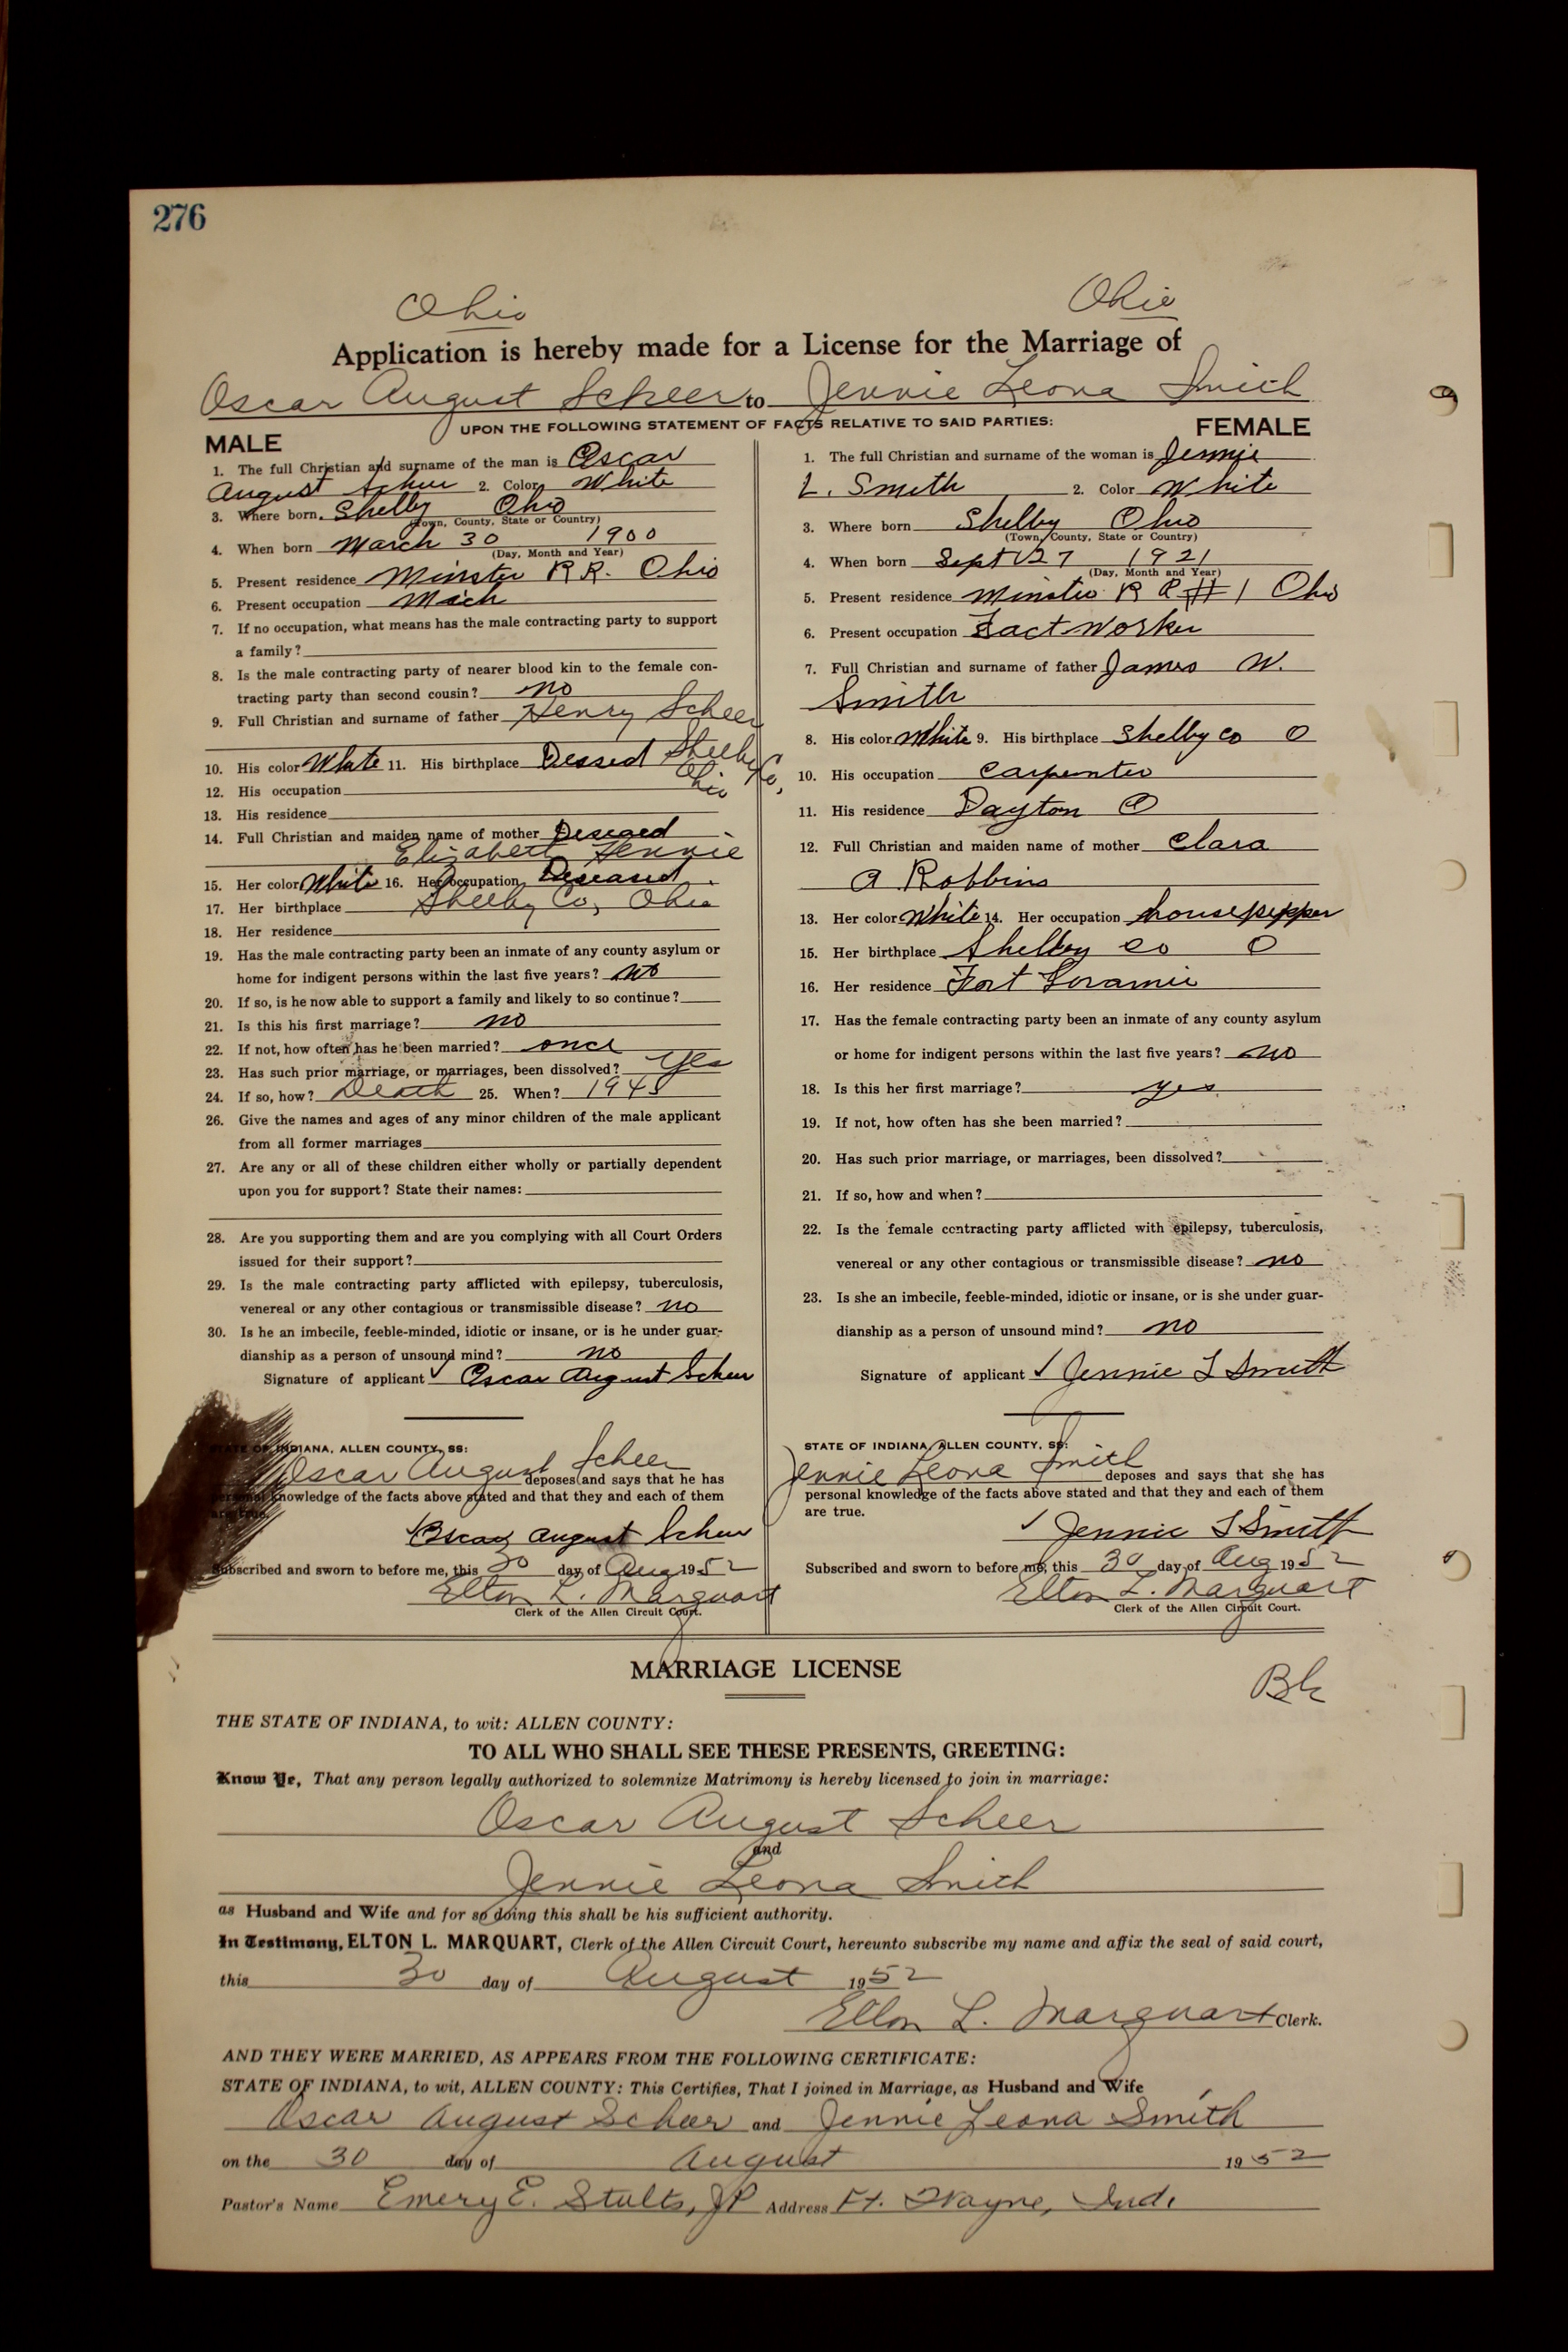 276
Ohio Ohio
Application is hereby made for a License for the Marriage of
Oscar August Scheer to Jennie Leona Smith
UPON THE FOLLOWING STATEMENT OF FACTS RELATIVE TO SAID PARTIES:
MALE
1. The full Christian and surname of the man is Oscar
August Scheer 2. Color White
3. Where born Shelby Ohio
(Town, County, State or Country)
4. When born March 30 1900
(Day, Month and Year)
5. Present residence Minster R R. Ohio
6. Present occupation Mach
7. If no occupation, what means has the male contracting party to support
a family?
8. Is the male contracting party of nearer blood kin to the female con-
tracting party than second cousin? no
9. Full Christian and surname of father Henry Scheer
10. His color White 11. His birthplace Dessed Shelby Co,
Ohio
12. His occupation
13. His residence
14. Full Christian and maiden name of mother Deseaed
Elizabeth Hennie
15. Her color White 16. Her occupation Deseased
17. Her birthplace Shelby Co, Ohio
18. Her residence
19. Has the male contracting party been an inmate of any county asylum or
home for indigent persons within the last five years? no
20. If so, is he now able to support a family and likely to so continue?
21. Is this his first marriage? no
22. If not, how often has he been married? once
23. Has such prior marriage, or marriages, been dissolved? yes
24. If so, how? Death 25. When? 1945
26. Give the names and ages of any minor children of the male applicant
from all former marriages
27. Are any or all of these children either wholly or partially dependent
upon you for support? State their names:
28. Are you supporting them and are you complying with all Court Orders
issued for their support?
29. Is the male contracting party afflicted with epilepsy, tuberculosis,
venereal or any other contagious or transmissible disease? no
30. Is he an imbecile, feeble-minded, idiotic or insane, or is he under guar-
dianship as a person of unsound mind? no
Signature of applicant Oscar August Scheer
STATE OF INDIANA, ALLEN COUNTY, SS:
Oscar August Scheer deposes and says that he has
personal knowledge of the facts above stated and that they and each of them
are true.
Oscar August Scheer
Subscribed and sworn to before me, this 30 day of Aug 1952
Elton L. Marquart
Clerk of the Allen Circuit Court.
FEMALE
1. The full Christian and surname of the woman is Jennie
L. Smith 2. Color White
3. Where born Shelby Ohio
(Town, County, State or Country)
4. When born Sept 27 1921
(Day, Month and Year)
5. Present residence Minster R R # 1 Ohio
6. Present occupation Fact Worker
7. Full Christian and surname of father James W.
Smith
8. His color White 9. His birthplace Shelby Co O
10. His occupation Carpenter
11. His residence Dayton O
12. Full Christian and maiden name of mother Clara
A Robbins
13. Her color White 14. Her occupation housepepper
15. Her birthplace Shelby Co O
16. Her residence Fort Loramie
17. Has the female contracting party been an inmate of any county asylum
or home for indigent persons within the last five years? no
18. Is this her first marriage? yes
19. If not, how often has she been married?
20. Has such prior marriage, or marriages, been dissolved?
21. If so, how and when?
22. Is the female contracting party afflicted with epilepsy, tuberculosis,
venereal or any other contagious or transmissible disease? no
23. Is she an imbecile, feeble-minded, idiotic or insane, or is she under guar-
dianship as a person of unsound mind? no
Signature of applicant Jennie L Smith
STATE OF INDIANA, ALLEN COUNTY, SS:
Jennie Leona Smith deposes and says that she has
personal knowledge of the facts above stated and that they and each of them
are true.
Jennie L Smith
Subscribed and sworn to before me, this 30 day of Aug 1952
Elton L. Marquart
Clerk of the Allen Circuit Court.
MARRIAGE LICENSE
Bk
THE STATE OF INDIANA, to wit: ALLEN COUNTY:
TO ALL WHO SHALL SEE THESE PRESENTS, GREETING:
Know Ye, That any person legally authorized to solemnize Matrimony is hereby licensed to join in marriage:
Oscar August Scheer
and
Jennie Leona Smith
as Husband and Wife and for so doing this shall be his sufficient authority.
In Testimony, ELTON L. MARQUART, Clerk of the Allen Circuit Court, hereunto subscribe my name and affix the seal of said court,
this 30 day of August 1952
Elton L. Marquart Clerk.
AND THEY WERE MARRIED, AS APPEARS FROM THE FOLLOWING CERTIFICATE:
STATE OF INDIANA, to wit, ALLEN COUNTY: This Certifies, That I joined in Marriage, as Husband and Wife
Oscar August Scheer and Jennie Leona Smith
on the 30 day of August 1952
Pastor's Name Emery E. Stults, JP Address Ft. Wayne, Ind.